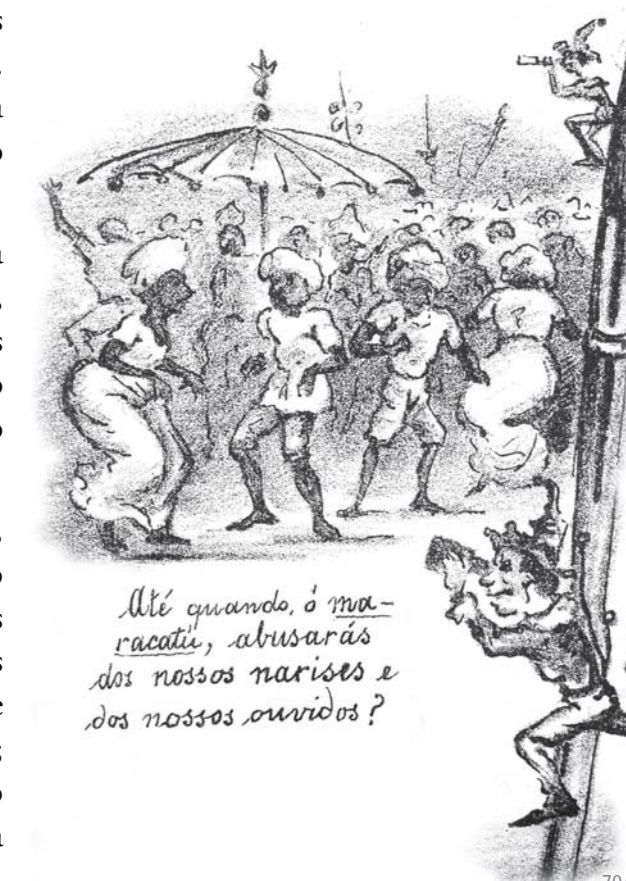 Até quando, ó ma-
racatú, abusarás
dos nossos narises e
dos nossos ouvidos?